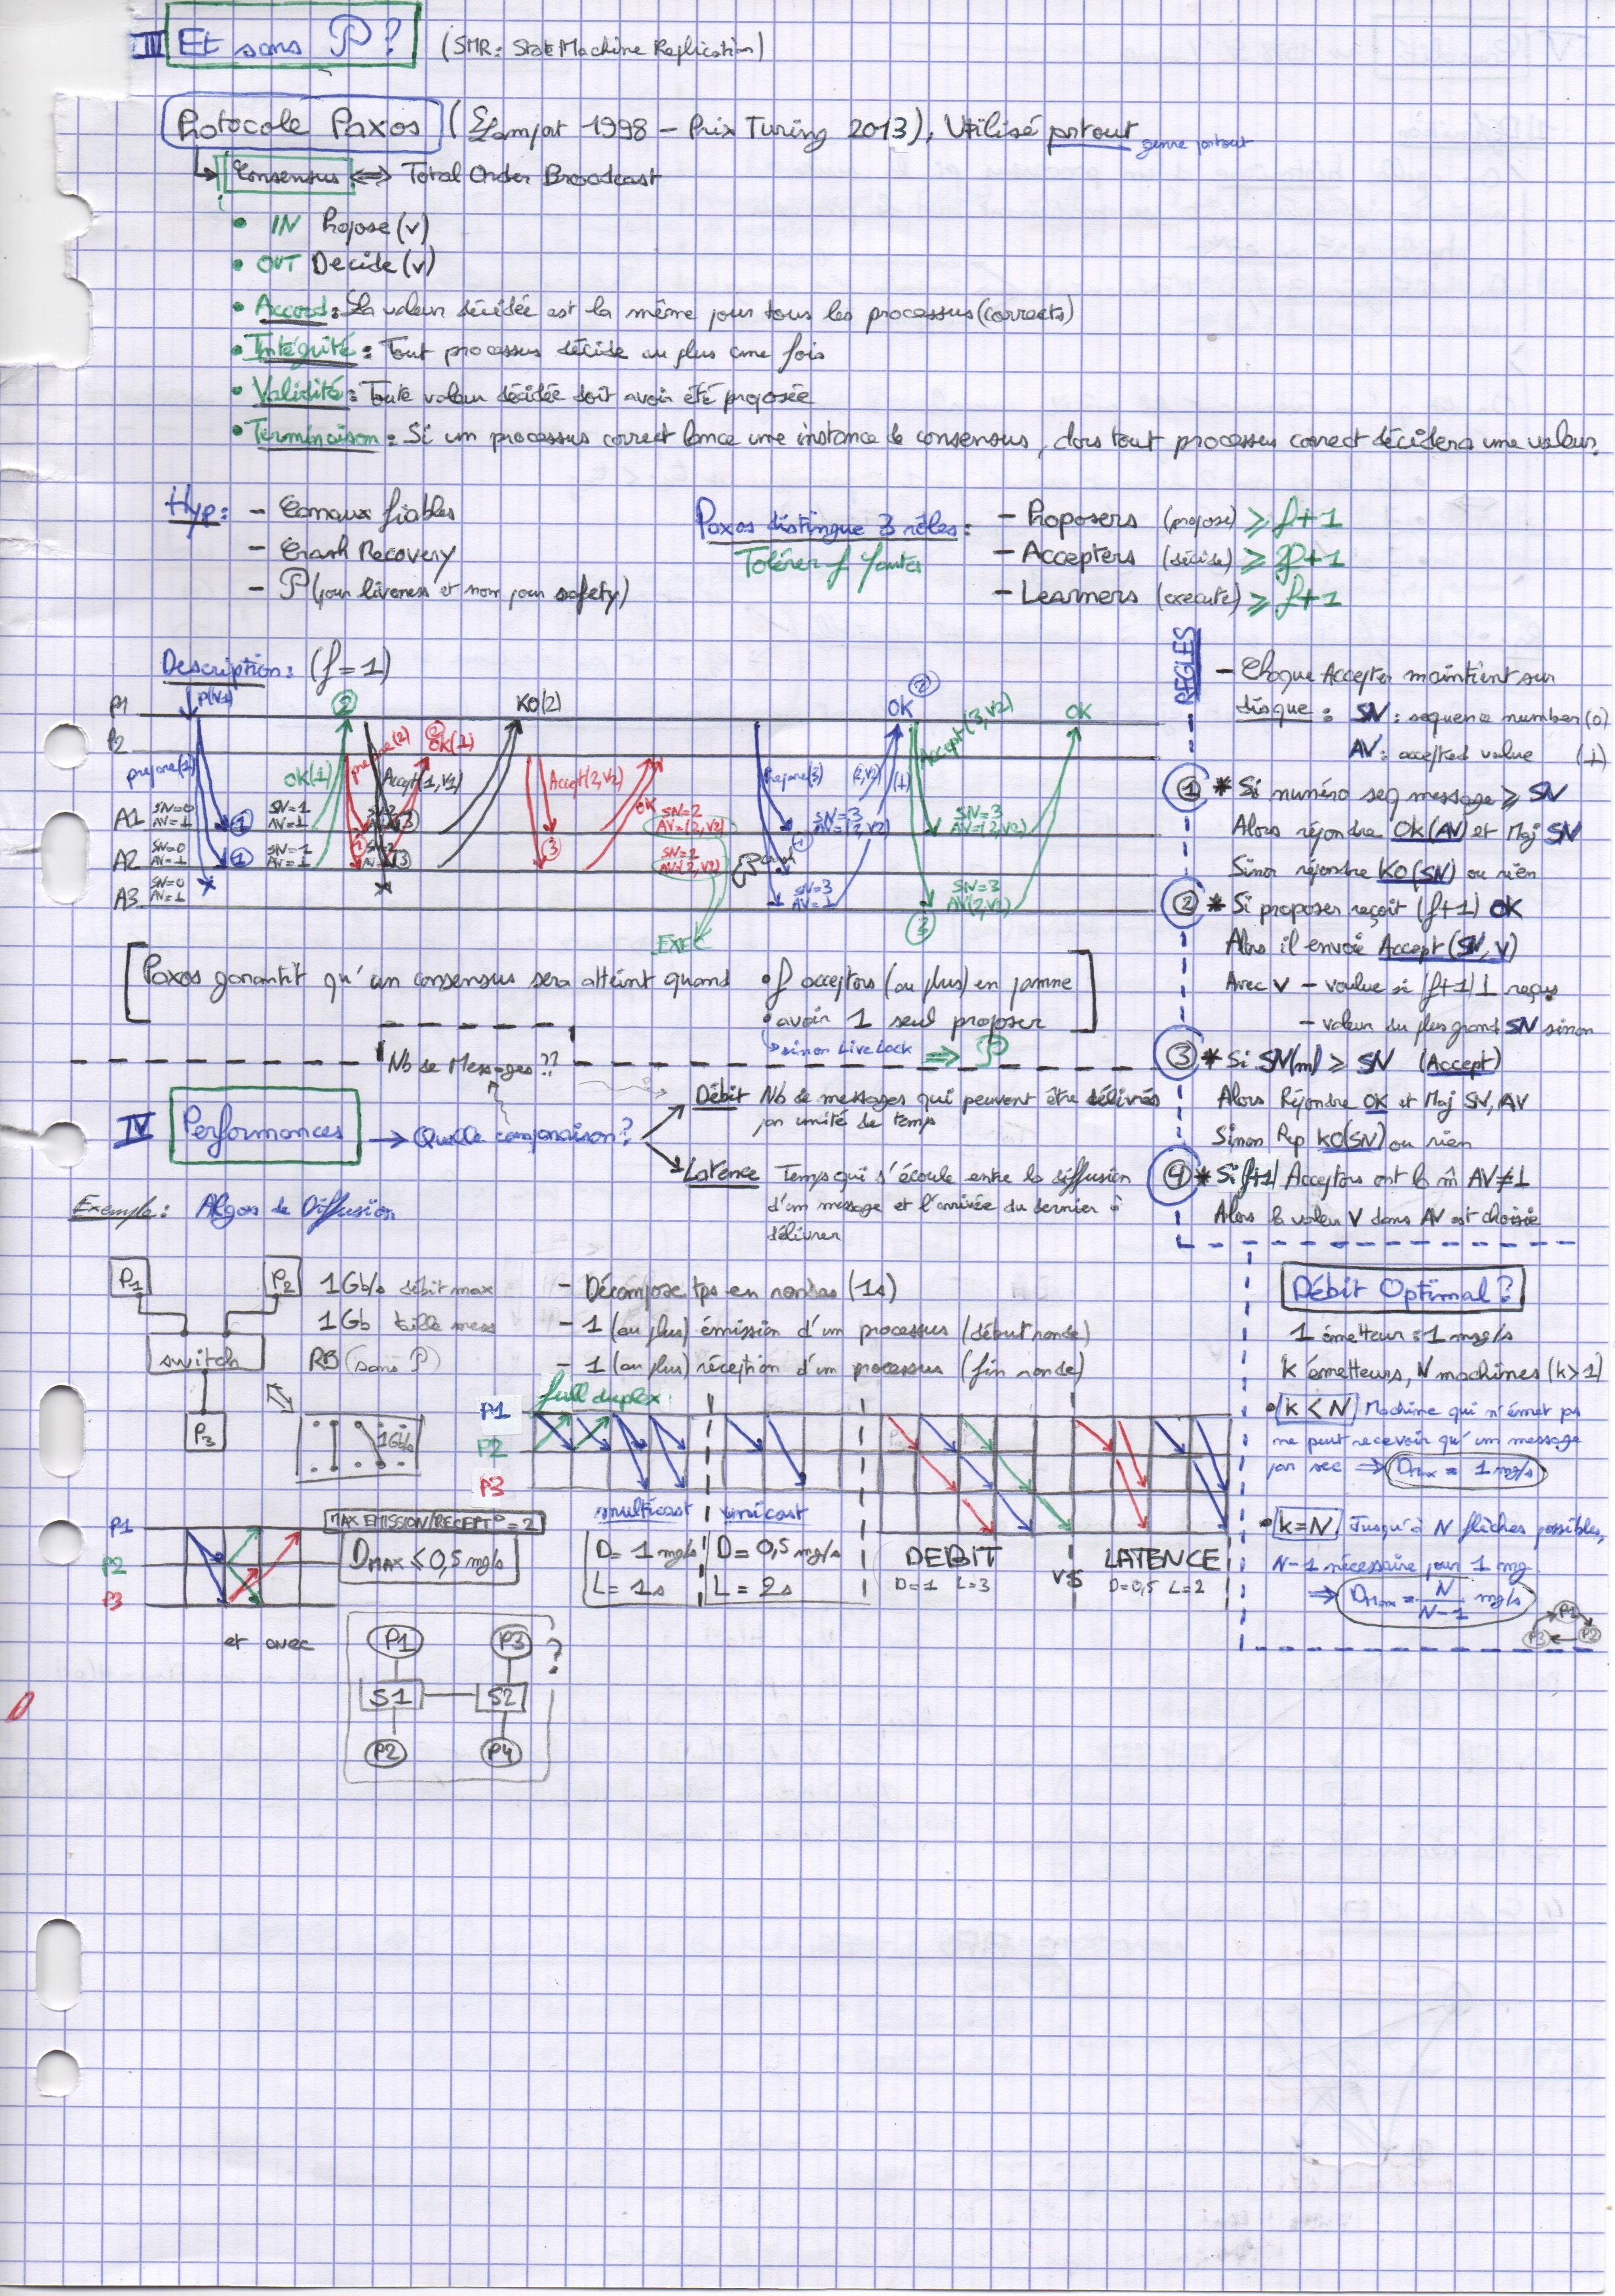 III Et sans P ? (SMR: State Machine Replication)
Protocole Paxos (Lamport 1998 - Prix Turing 2013), Utilisé prtout genre partout
Consensus <=> Total Order Broadcast
• IN Propose(v)
• OUT Decide(v)
• Accord: La valeur décidée est la même pour tous les processus (corrects)
• Intégrité: Tout processus décide au plus une fois
• Validité: Toute valeur décidée doit avoir été proposée
• Terminaison: Si un processus correct lance une instance de consensus, alors tout processus correct décidera une valeur.
Hyp: - Canaux fiables
- Crash Recovery
- P (pour liveness et non pour safety)
Paxos distingue 3 rôles:
Tolérer f fautes
- Proposers (propose) ≥ f+1
- Accepters (décide) ≥ 2f+1
- Learners (execute) ≥ f+1
Description: (f=1)
P1 P(V1) 2 KO(2) OK 2 OK
P2 prepare(1) OK(⊥) prepare(2) OK(⊥) Accept(1,V1) Accept(2,V2) OK Prepare(3) (2,V2) (⊥) Accept(3,V2)
A1 SN=0 AV=⊥ 1 SN=1 AV=⊥ SN=2 3 SN=2 AV=(2,V2) SN=3 AV=(2,V2) SN=3 AV=(2,V2)
A2 SN=0 AV=⊥ 1 SN=1 AV=⊥ SN=2 3 3 SN=2 AV=(2,V2) crash
A3 SN=0 AV=⊥ SN=3 AV=⊥ SN=3 AV(2,V2) 3
EXEC
REGLES
- Chaque Accepter maintient sur
disque: SN: sequence number (0)
AV: accepted value (⊥)
1 * Si numéro seq message ≥ SN
Alors répondre OK(AV) et Maj SN
Sinon répondre KO(SN) ou rien
2 * Si proposer reçoit (f+1) OK
Alors il envoie Accept(SN, V)
Avec V - voulue si (f+1) ⊥ reçus
- valeur du plus grand SN sinon
3 * Si SN(m) ≥ SN (Accept)
Alors Répondre OK et Maj SN, AV
Sinon Rep KO(SN) ou rien
4 * Si f+1 Acceptors ont la m̂ AV≠⊥
Alors la valeur V dans AV est choisie
Paxos garantit qu'un consensus sera atteint quand • f acceptors (ou plus) en panne
• avoir 1 seul proposer
sinon LiveLock => P
Nb de Messages ??
IV Performances → Quelle comparaison?
Débit Nb de messages qui peuvent être délivrés
par unité de temps
Latence Temps qui s'écoule entre la diffusion
d'un message et l'arrivée du dernier à
délivrer
Exemple: Algos de Diffusion
P1 P2
switch
P3
1Gb/s débit max
1Gb taille mess
RB (sans P)
1Gb/s
- Décompose tps en rondes (1s)
- 1 (au plus) émission d'un processus (début ronde)
- 1 (au plus) réception d'un processus (fin ronde)
full duplex:
P1
P2
P3
multicast unicast
D= 1 mg/s D= 0,5 mg/s
L= 1s L= 2s
DEBIT vs LATENCE
D=1 L=3 D=0,5 L=2
P1
P2
P3
MAX EMISSION/RECEPT° = 2
DMAX ≤ 0,5 mg/s
et avec
P1 P3 ?
S1 S2
P2 P4
Débit Optimal ?
1 émetteur: 1 msg/s
k émetteurs, N machines (k>1)
• k < N Machine qui n'émet pas
ne peut recevoir qu'un message
par sec => Dmax = 1 mg/s
• k=N. Jusqu'à N flèches possibles,
N-1 nécessaire pour 1 mg
=> Dmax = N/N-1 mg/s
P1
P3 P2